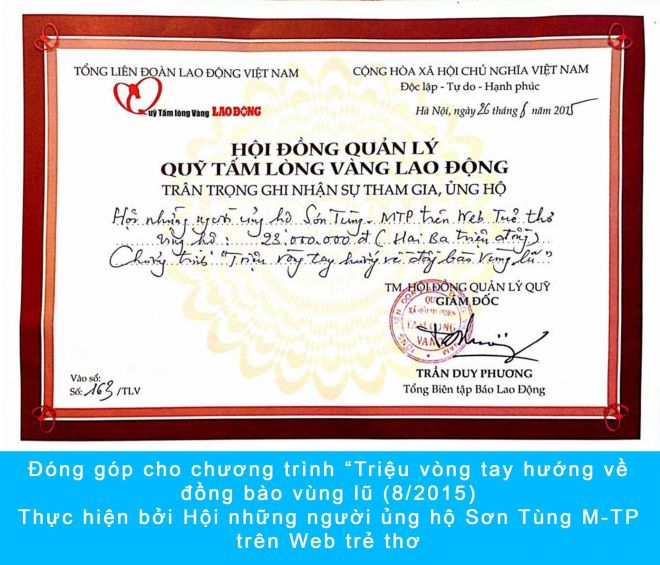 TỔNG LIÊN ĐOÀN LAO ĐỘNG VIỆT NAM
Quỹ Tấm lòng Vàng LAO ĐỘNG
CỘNG HÒA XÃ HỘI CHỦ NGHĨA VIỆT NAM
Độc lập - Tự do - Hạnh phúc
Hà Nội, ngày 26 tháng 8 năm 2015
HỘI ĐỒNG QUẢN LÝ
QUỸ TẤM LÒNG VÀNG LAO ĐỘNG
TRÂN TRỌNG GHI NHẬN SỰ THAM GIA, ỦNG HỘ
Hội những người ủng hộ Sơn Tùng - MTP trên Web Trẻ thơ
ủng hộ: 23.000.000 đ (Hai Ba triệu đồng)
Chương trình "Triệu vòng tay hướng về đồng bào vùng lũ"
TM. HỘI ĐỒNG QUẢN LÝ QUỸ
GIÁM ĐỐC
TRẦN DUY PHƯƠNG
Tổng Biên tập Báo Lao Động
Vào sổ:
Số: 163 /TLV
Đóng góp cho chương trình “Triệu vòng tay hướng về
đồng bào vùng lũ (8/2015)
Thực hiện bởi Hội những người ủng hộ Sơn Tùng M-TP
trên Web trẻ thơ